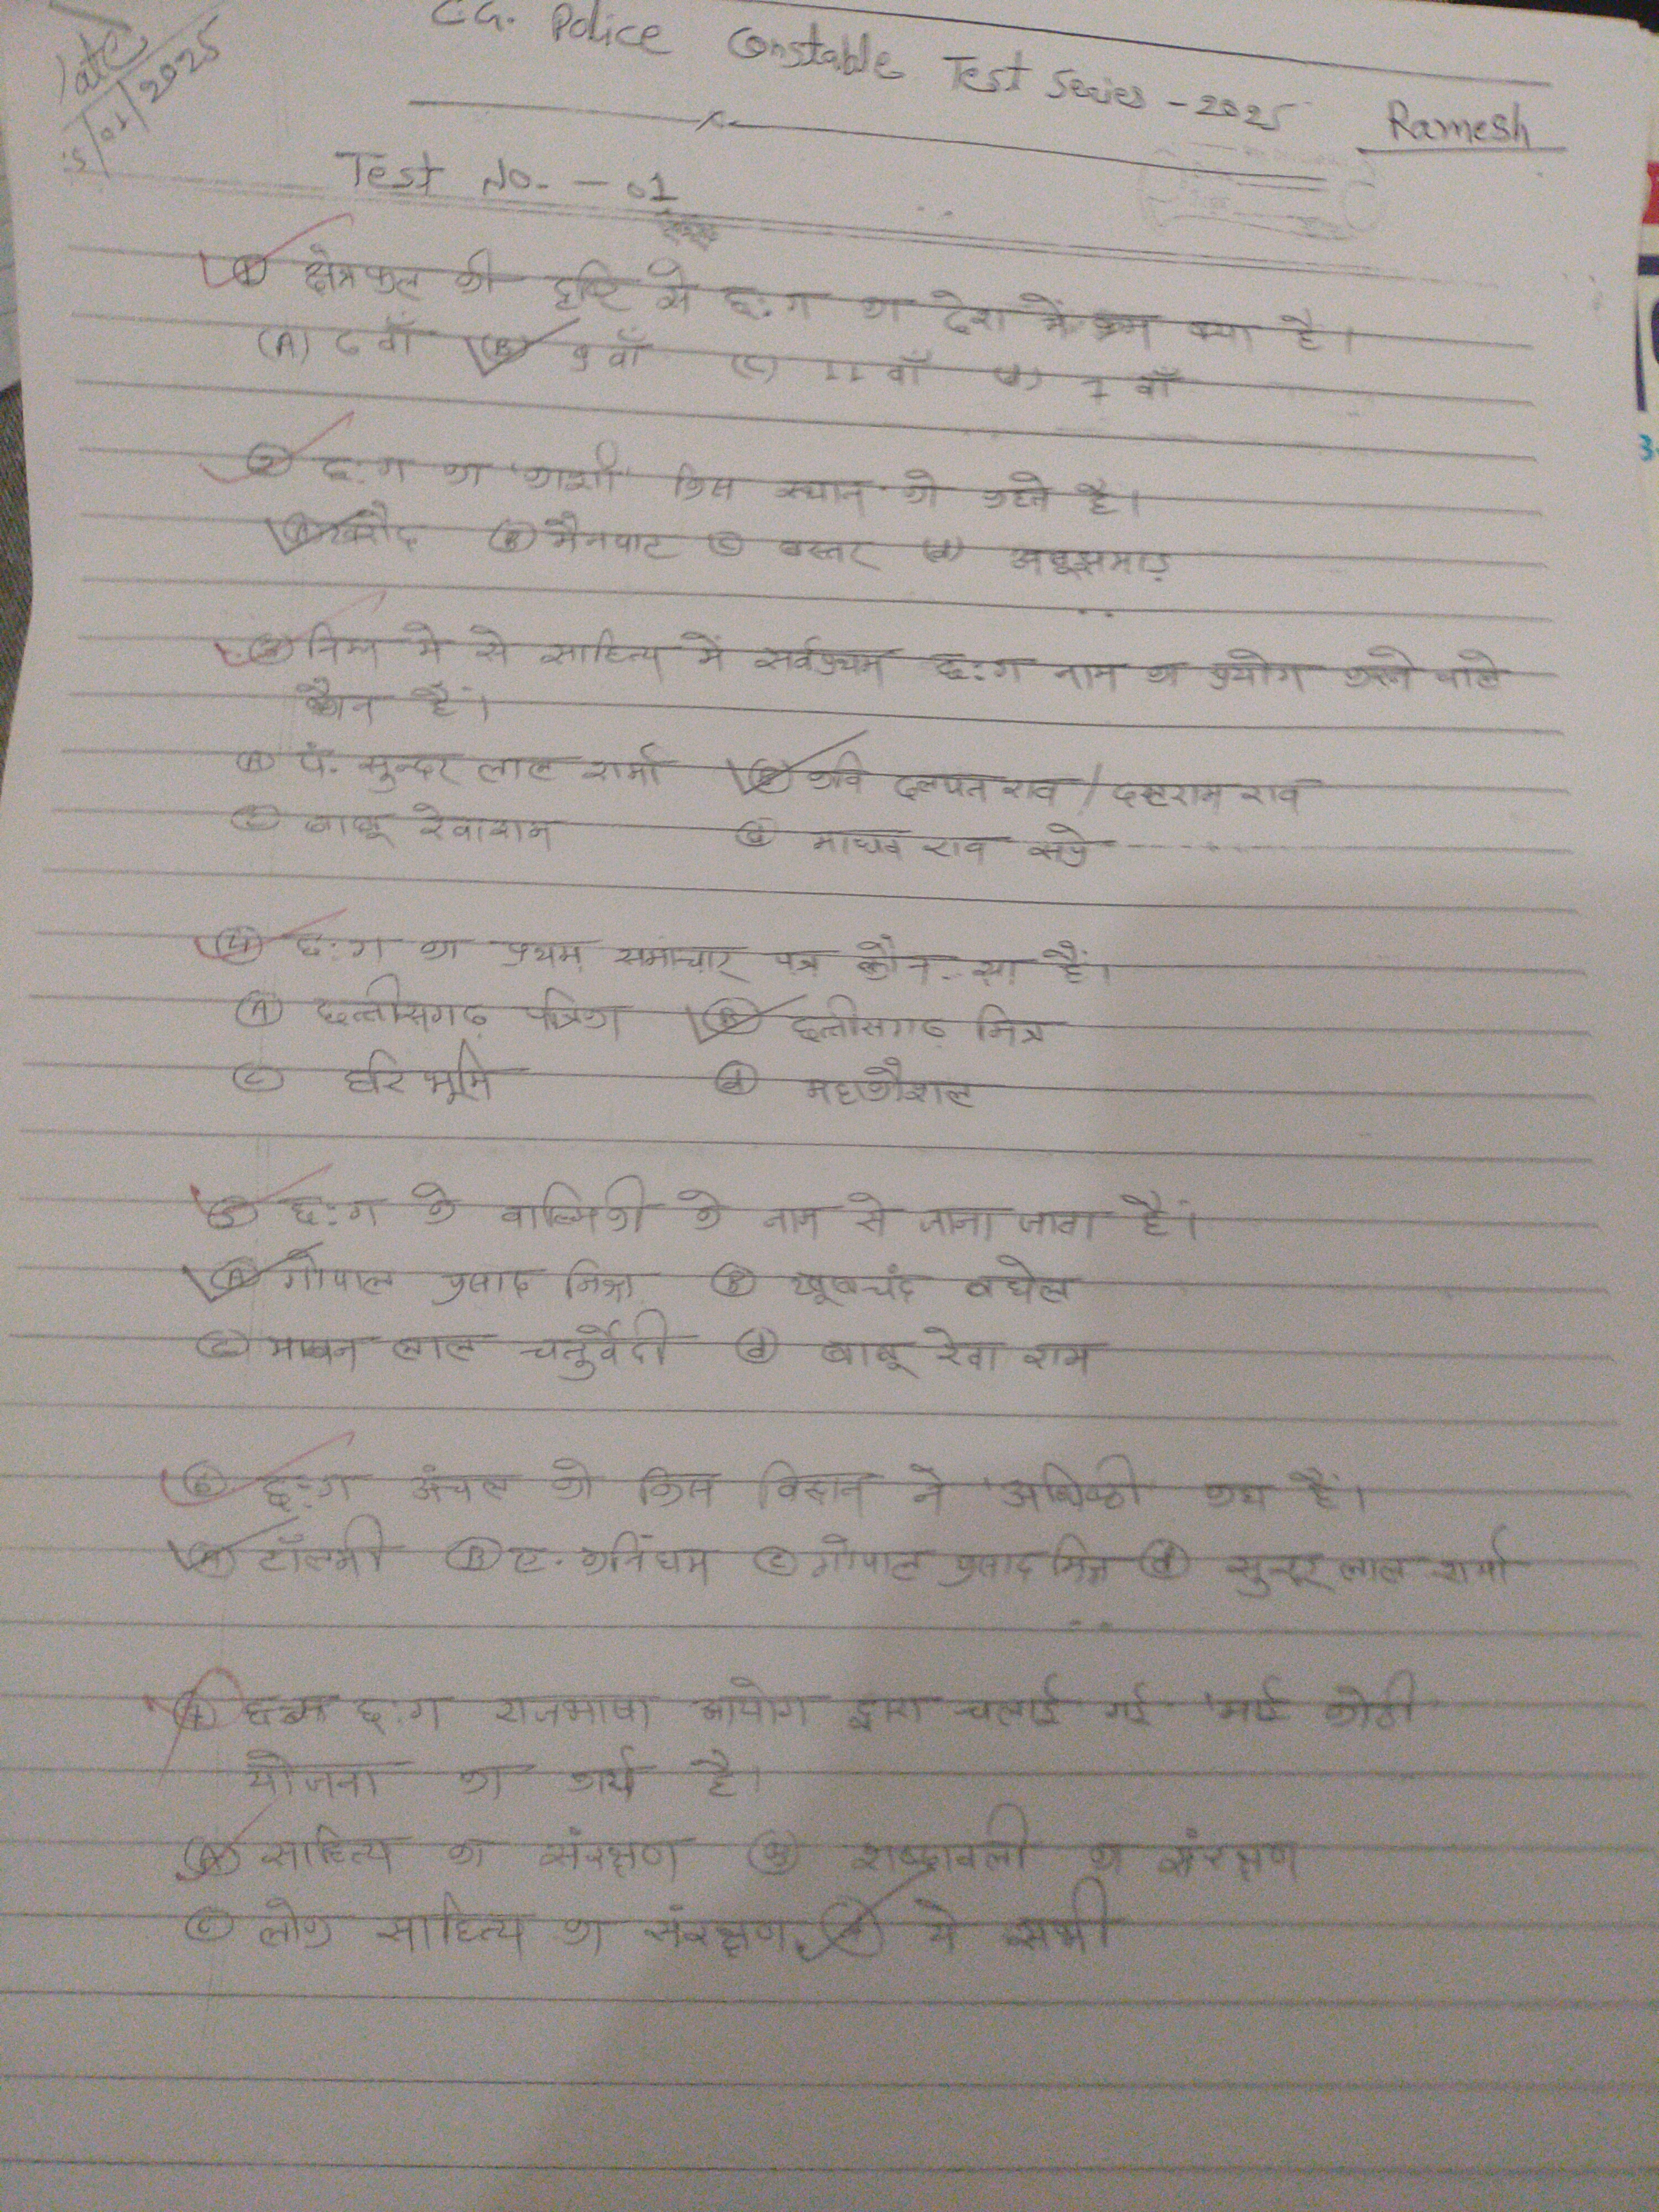 C.G. Police Constable Test Series - 2025
Ramesh
Date
/01/2025
Test No. - 01
① क्षेत्रफल की दृष्टि से छ:ग का देश में क्रम क्या है।
(A) 6 वाँ (B) 9 वाँ (C) 11 वाँ (d) 7 वाँ
② छ:ग का 'काशी' किस स्थान को कहते है।
(A) खरौद (B) मैनपाट (C) बस्तर (d) अबूझमाड़
③ निम्न मे से साहित्य में सर्वप्रथम छ:ग नाम का प्रयोग करने वाले
कौन हैं।
(A) पं. सुन्दर लाल शर्मा (B) कवि दलपत राव / दलराम राव
(C) बाबू रेवाराम (d) माधव राव सप्रे
④ छ:ग का प्रथम समाचार पत्र कौन-सा हैं।
(A) छत्तीसगढ़ पत्रिका (B) छत्तीसगढ़ मित्र
(C) हरि भूमि (d) महाकौशल
⑤ छ:ग के वाल्मिकी के नाम से जाना जाता हैं।
(A) गोपाल प्रसाद मिश्र (B) खूबचंद बघेल
(C) माखन लाल चतुर्वेदी (d) बाबू रेवा राम
⑥ छ:ग अंचल को किस विद्वान ने 'अधिष्ठी' कहा हैं।
(A) टॉलमी (B) ए. कनिंघम (C) गोपाल प्रसाद मिश्र (d) सुन्दर लाल शर्मा
⑦ छ:ग राजभाषा आयोग द्वारा चलाई गई 'माई कोठी
योजना का कार्य है।
(A) साहित्य का संरक्षण (B) शब्दावली का संरक्षण
(C) लोक साहित्य का संरक्षण (d) ये सभी